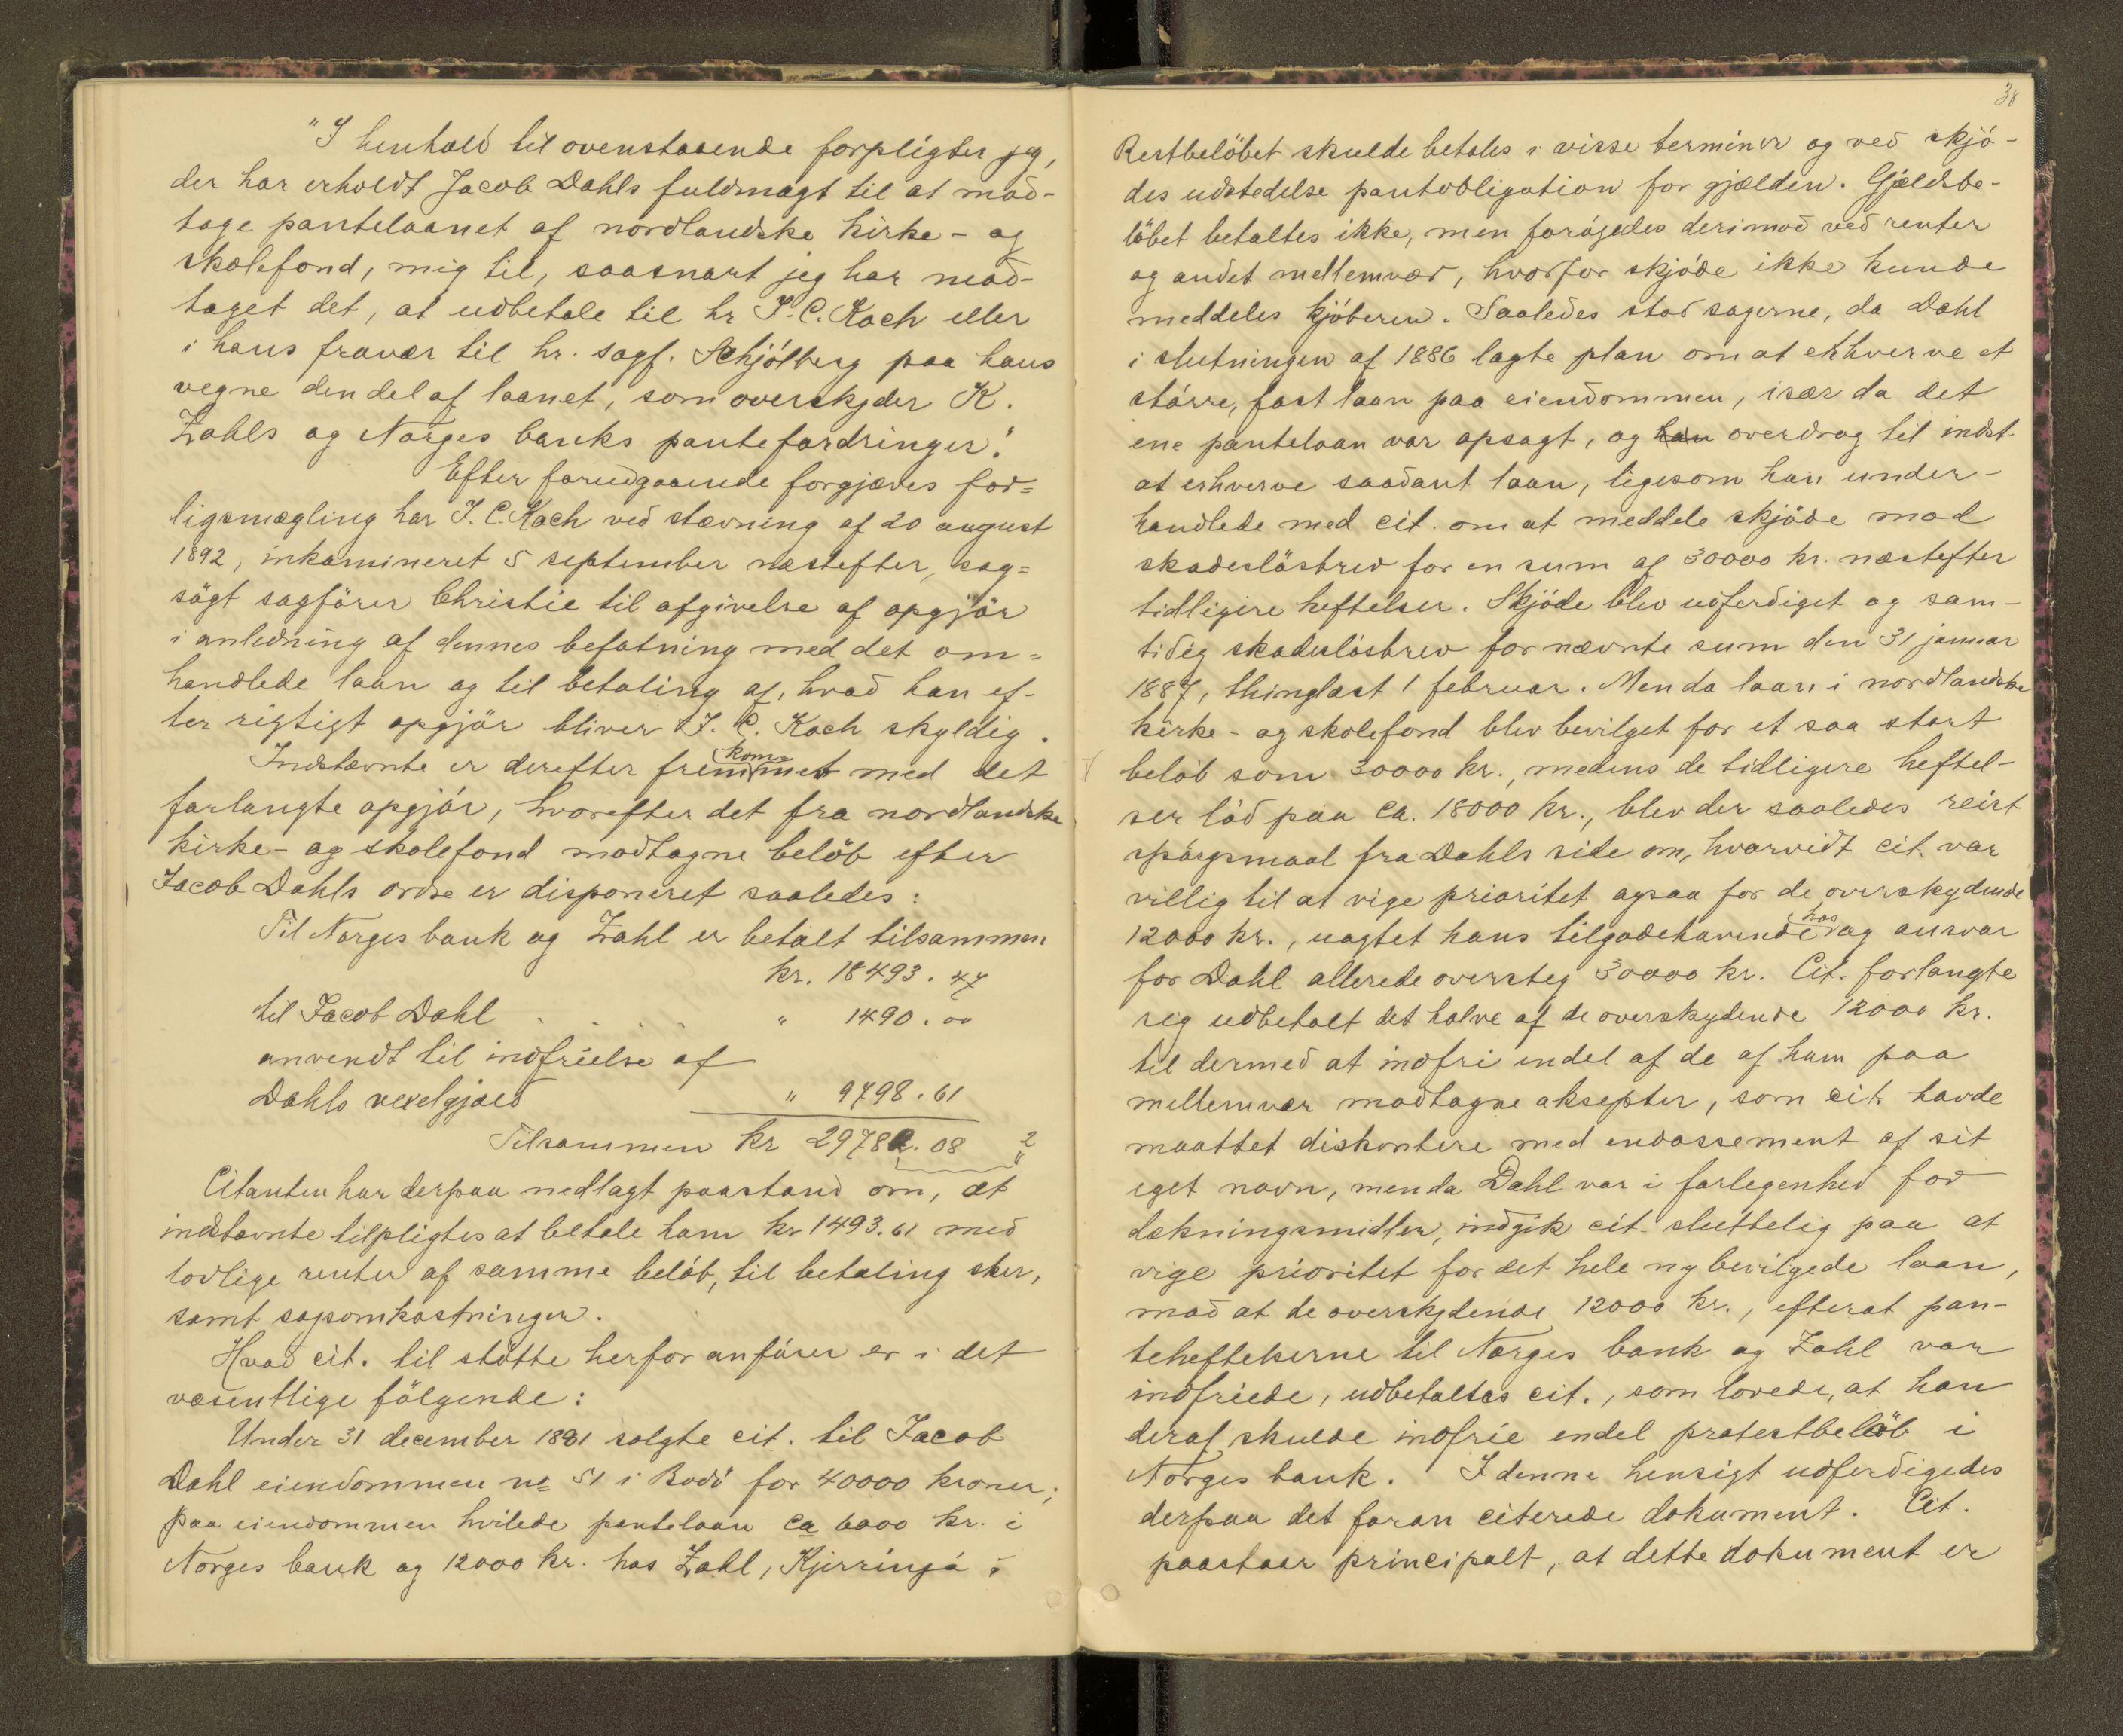 "I henhold til ovenstaaende forpligter jeg,
der har erholdt Jacob Dahls fuldmagt til at mod-
tage pantelaanet af nordlandske kirke- og
skolefond, mig til, saasnart jeg har mod-
taget det, at udbetale til hr J. C. Koch eller
i hans fravær til hr. sagf. Schjölberg paa hans
vegne den del af laanet, som overskyder K.
Zahls og Norges banks pantefordringer."
Efter forudgaaende forgjæves for=
ligsmægling har J. C. Koch ved stævning af 20 august
1892, inkamineret 5 september næstefter, sag=
sögt sagförer Christie til afgivelse af opgjör
i anledning af dennes befatning med det om=
handlede laan og til betaling af, hvad han ef-
ter rigtigt opgjör bliver J. C. Koch skyldig.
Indstævnte er derefter fremkommet med det
forlangte opgjör, hvorefter det fra nordlandske
kirke- og skolefond modtagne belöb efter
Jacob Dahls ordre er disponeret saaledes:
Til Norges bank og Zahl er betalt tilsammen
kr. 18493.47
til Jacob Dahl . . . . " 1490.00
anvendt til indfrielse af
Dahls vexelgjæld " 9798.61
Tilsammen kr 29782.08 2
Citanten har derpaa nedlagt paastand om, at
indstævnte tilpligtes at betale ham kr 1493.61 med
lovlige renter af samme belöb, til betaling sker,
samt sagsomkostninger.
Hvad cit. til stötte herfor anförer er i det
væsentlige fölgende:
Under 31 december 1881 solgte cit. til Jacob
Dahl eiendommen no 51 i Bodö for 40000 kroner;
paa eiendommen hvilede pantelaan ca 6000 kr. i
Norges bank og 12000 kr. hos Zahl, Kjerringö;
38
Restbelöbet skulde betales i visse terminer og ved skjö-
des udstedelse pantobligation for gjælden. Gjældsbe-
löbet betaltes ikke, men forögedes derimod ved renter
og andet mellemvær, hvorfor skjöde ikke kunde
meddeles kjöberen. Saaledes stod sagerne, da Dahl
i slutningen af 1886 lagte plan om at erhverve et
större, fast laan paa eiendommen, især da det
ene pantelaan var opsagt, og han overdrog til indst.
at erhverve saadant laan, ligesom han under-
handlede med cit. om at meddele skjöde mod
skadeslösbrev for en sum af 30000 kr. næstefter
tidligere heftelser. Skjöde blev udferdiget og sam-
tidig skadeslösbrev for nævnte sum den 31 januar
1887, thinglæst 1 februar. Men da laan i nordlandske
kirke- og skolefond blev bevilget for et saa stort
belöb som 30000 kr., medens de tidligere heftel-
ser löd paa ca. 18000 kr., blev der saaledes reist
spörgsmaal fra Dahls side om, hvorvidt cit. var
villig til at vige prioritet ogsaa for de overskydende
12000 kr., uagtet hans tilgodehavende hos og ansvar
for Dahl allerede oversteg 30000 kr. Cit. forlangte
sig udbetalt det halve af de overskydende 12000 kr.
til dermed at indfri endel af de af ham paa
mellemvær modtagne aksepter, som cit. havde
maattet diskontere med endossement af sit
eget navn, men da Dahl var i forlegenhed for
dækningsmidler, indgik cit. sluttelig paa at
vige prioritet for det hele nybevilgede laan,
mod at de overskydende 12000 kr., efterat pan-
teheftelserne til Norges bank og Zahl var
indfriede, udbetaltes cit., som lovede, at han
deraf skulde indfrie endel protestbelöb i
Norges bank. I denne hensigt udferdigedes
derpaa det foran citerede dokument. Cit.
paastaar principalt, at dette dokument er